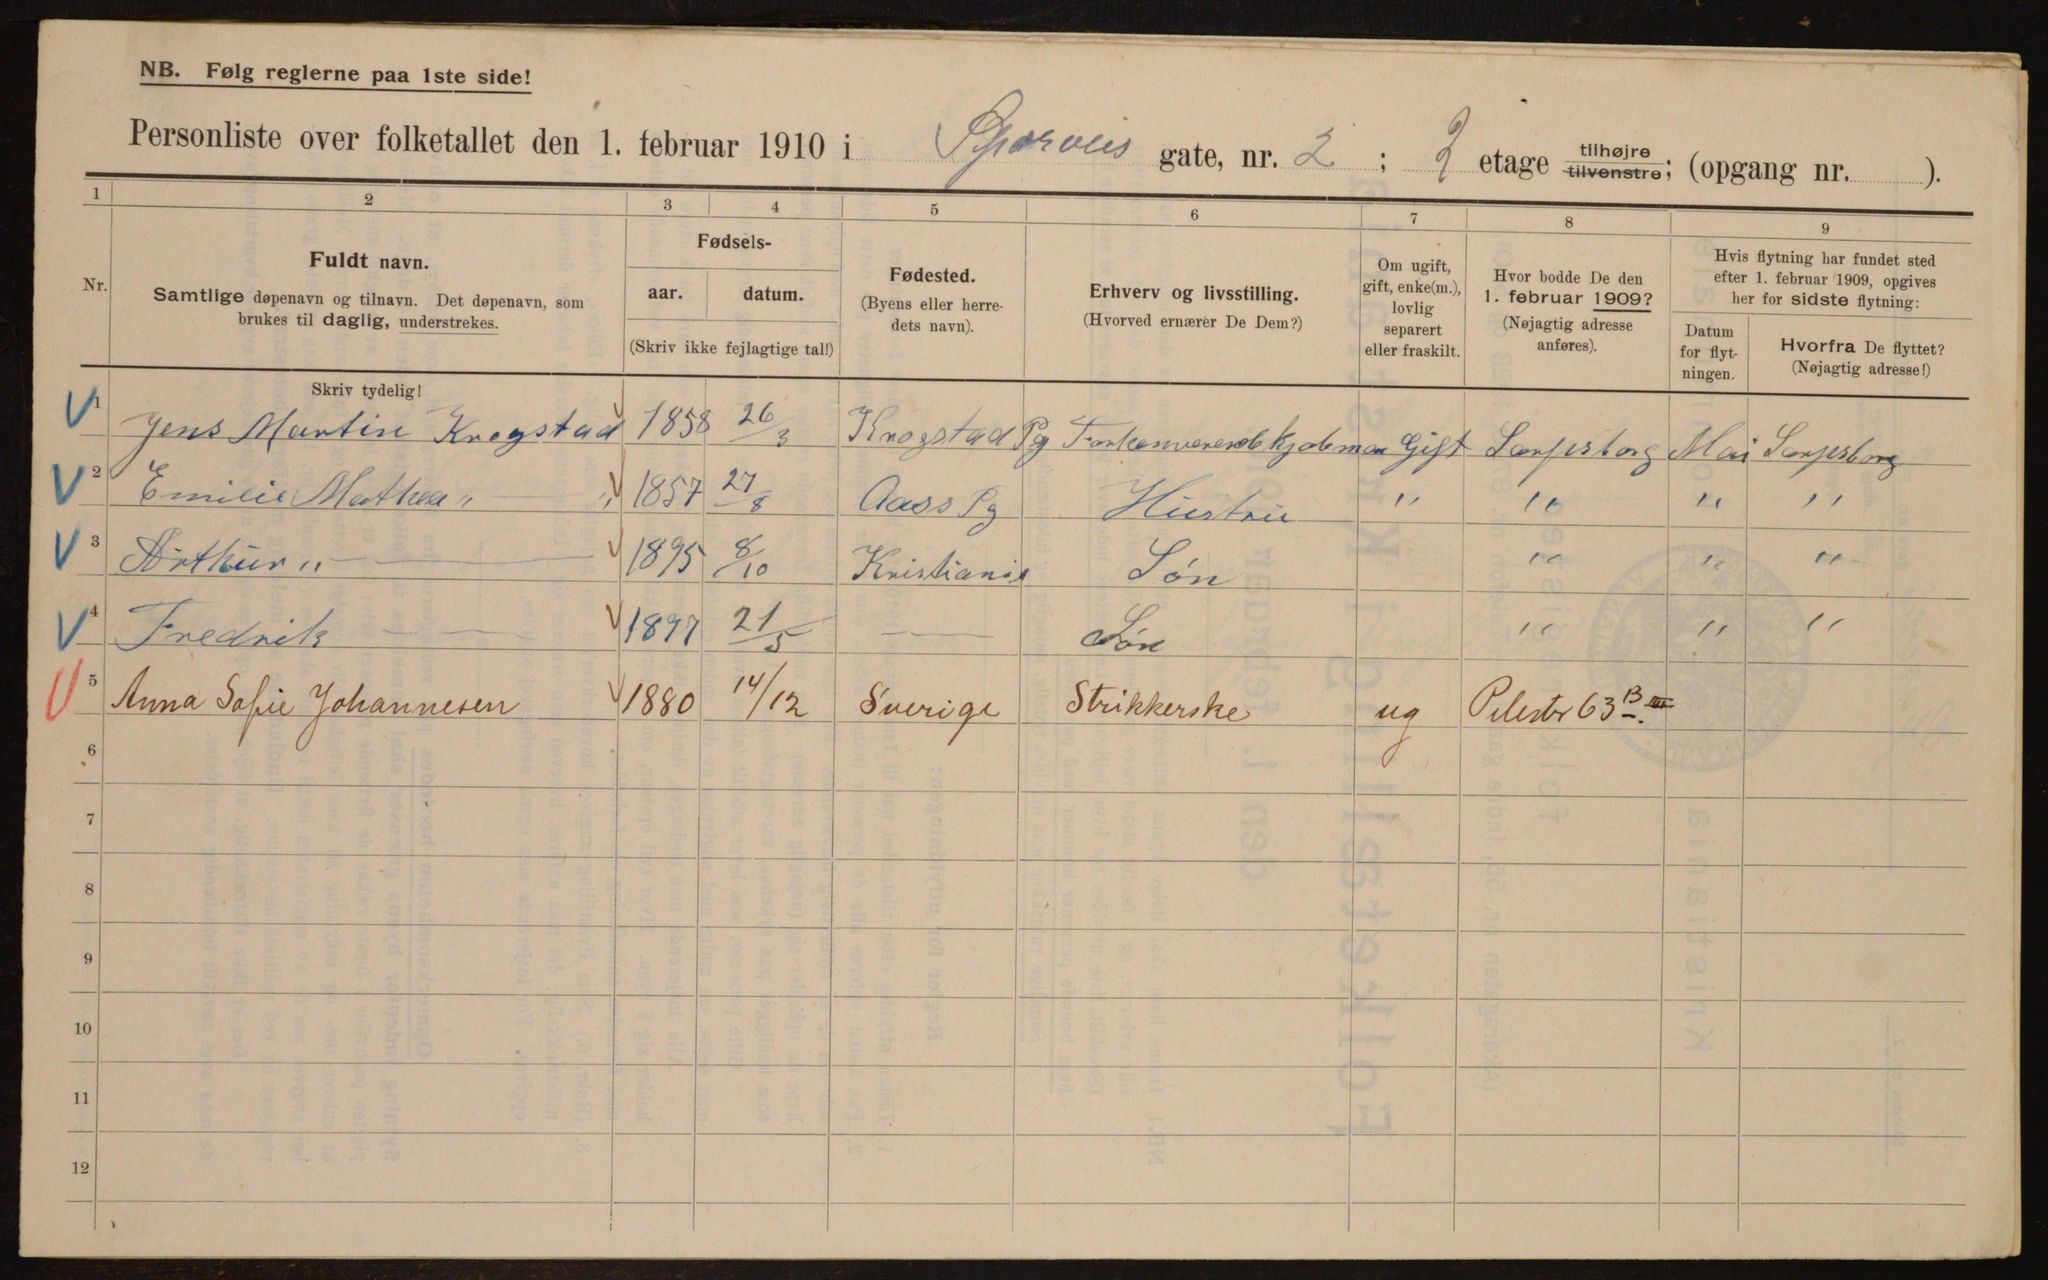 NB. Følg reglerne paa 1ste side!
Personliste over folketallet den 1. februar 1910 i Sporveis gate, nr. 2 ; 2 etage tilhøjre tilvenstre; (opgang nr. ).
1 2 3 4 5 6 7 8 9
Nr.
Fuldt navn.
Samtlige døpenavn og tilnavn. Det døpenavn, som
brukes til daglig, understrekes.
Skriv tydelig!
Fødsels-
aar. datum.
(Skriv ikke fejlagtige tal!)
Fødested.
(Byens eller herre-
dets navn).
Erhverv og livsstilling.
(Hvorved ernærer De Dem?)
Om ugift,
gift, enke(m.),
lovlig
separert
eller fraskilt.
Hvor bodde De den
1. februar 1909?
(Nøjagtig adresse
anføres).
Hvis flytning har fundet sted
efter 1. februar 1909, opgives
her for sidste flytning:
Datum
for flyt-
ningen.
Hvorfra De flyttet?
(Nøjagtig adresse!)
1 Jens Martin Krogstad 1858 26/3 Krogstad Pg Gift Sarpsborg Mai Sarpsborg
2 Emilie Mathea „ „ 1857 27/8 Aass Pg Hustru „ „ „ „
3 Arthur „ — — 1895 8/10 Kristiania Søn „ „ „
4 Fredrik — — 1897 21/5 — — Søn „ „ „
5 Anna Sofie Johannesen 1880 14/12 Sverige Strikkerske ug Pilestr 63 B III
6
7
8
9
10
11
12